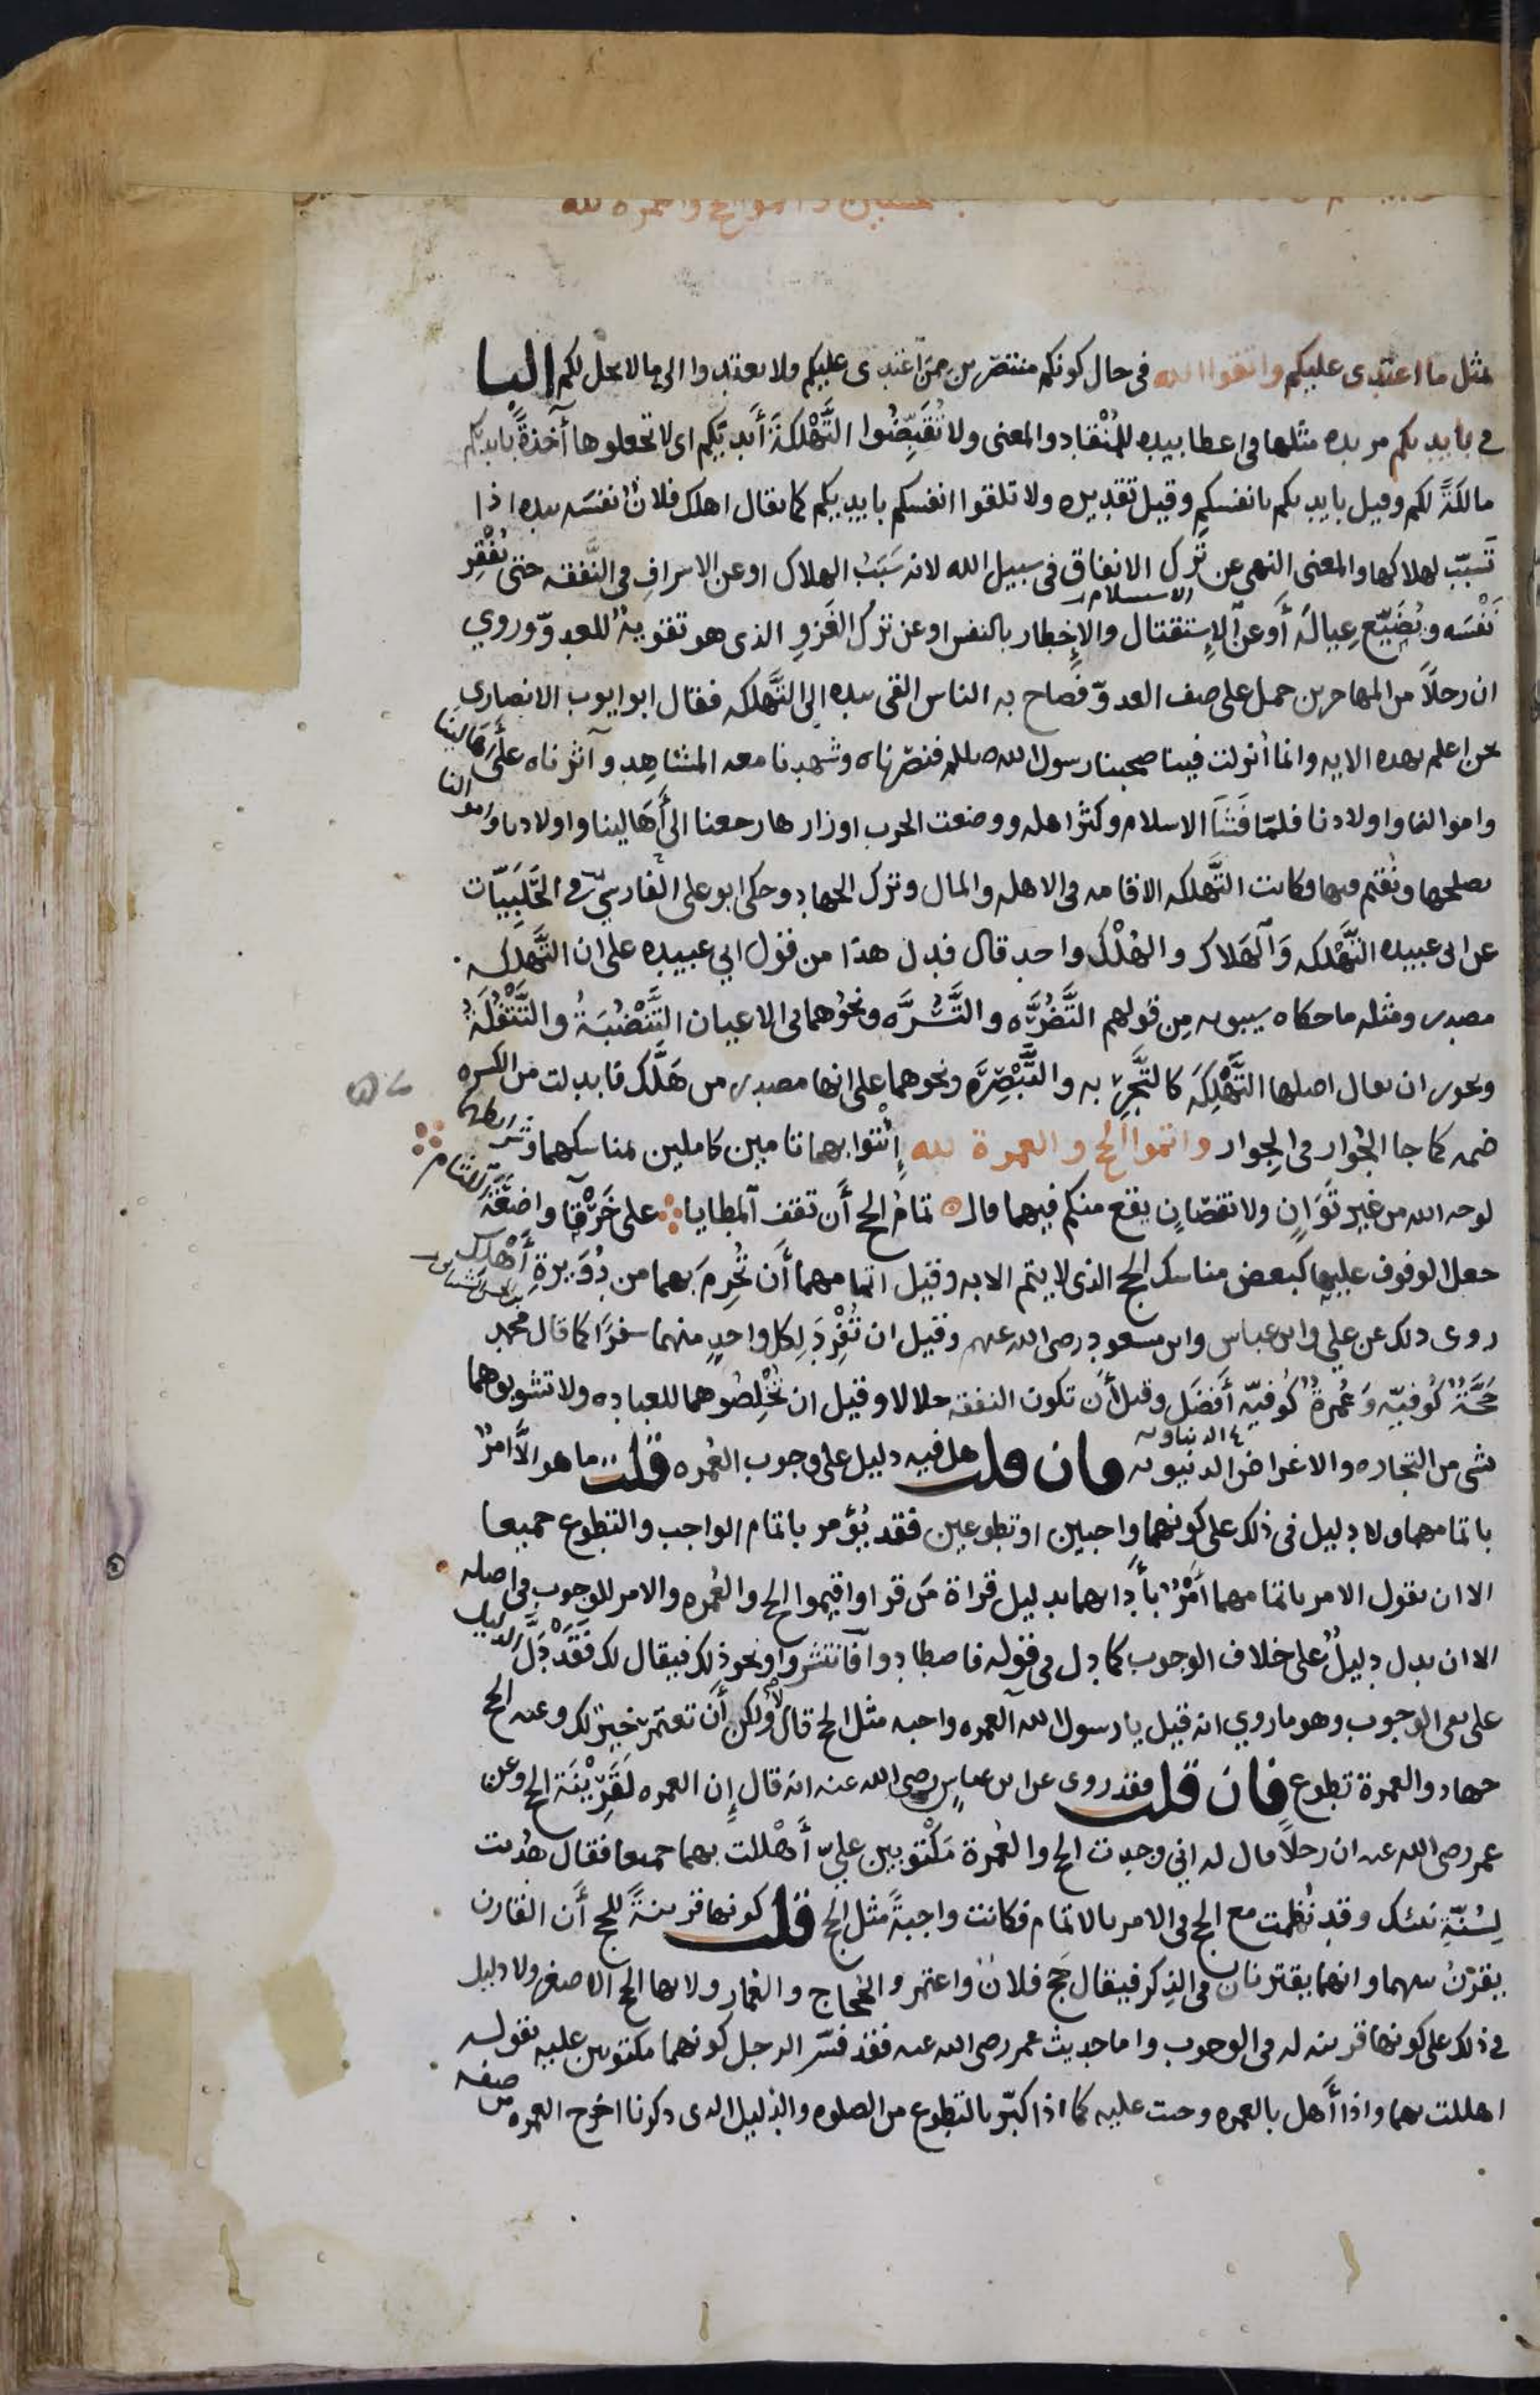 بمثل ما اعتدى عليكم واتقوا الله في حال كونكم منتصرين ممن اعتدى عليكم ولا تعتدوا الى ما لا يحل لكم البا
في بايديكم مزيده مثلها في اعطا بيده للمنقاد والمعنى ولا تُقَبِّضُوا التَّهْلكةَ أيديَكم اى لا تجعلوها آخذةً بايديكم
مالكةً لكم وقيل بايديكم بانفسكم وقيل تقديره ولا تلقوا انفسكم بايديكم كما يقال اهلك فلانٌ نفسَه بيده اذا
تَسبّب لهلاكها والمعنى النهى عن تَرْك الانفاق في سبيل الله لانه سَبَبُ الهلاك او عن الاسرافِ في النَّفقه حتى يُفْقِر
نَفْسَه ويُضَيّع عِيالَه أو عن الإستقتال والإخطار بالنفس او عن ترك الغَزوِ الذى هو تقويةٌ للعدوّ وروي
الاستسلام
ان رجلاً من المهاجرين حمل على صف العدوّ فصاح به الناس القى بيده الى التَّهلكه فقال ابو ايوب الانصارى
نحن اعلم بهذه الايه وانما أنزلت فينا صحبنا رسول الله صللم فنصرناه وشهدنا معه المشاهِد وآثرناه على أهَالينا
واموالنا واولادنا فلمّا فَشَا الاسلام وكثر اهله ووضعت الحرب اوزارها رجعنا الى أَهَالينا واولادنا واموالنا
نصلحها ونُقيم فيها فكانت التَّهلكه الاقامه في الاهل والمال وترك الجهاد وحكى ابو على الفارسيّ في الحَلَبِيّات
عن ابى عبيده التَّهْلكه والهَلاك والهُلْك واحد قال فدل هذا من قول ابي عبيده على ان التَّهلكه
مصدر ومثله ما حكاه سيبويه مِن قولهم التَّضُرَّه والتَّسُرَّه ونحوُهما في الاعيان التَّنْضُبَةُ والتَّتْفُلَةُ
ويجوز ان يقال اصلها التَّهْلِكَه كالتَّجْرِبه والتَّبْصِرَه ونحوهما على انها مصدر من هَلَّك فابدلت من الكسره
ضمه كما جا الجُوار في الجِوار واتموا الحج والعمرة لله إئتوا بهما تامين كاملين بمناسكهما وشرائطهما
لوجه الله من غير تَوَانٍ ولا نقصانٍ يقع منكم فيهما قال تمامُ الحج أَن تقف المطايا على خَرْقَآ واضعَةِ اللثام
جعل الوقوف عليها كبعض مناسك الحج الذى لا يتم الا به وقيل اتمامهما أن تُحْرِمَ بهما من دُوَيرةِ أَهْلك
روى ذلك عن علي وابن عباس وابن مسعود رضى الله عنهم وقيل ان تُفْرِدَ لِكل واحدٍ منهما سفرًا كما قال محمد
حَجّةٌ كُوفيّه وَعُمرةٌ كُوفيّه أَفضَل وقيل أَن تكون النفقه حلالا وقيل ان تُخْلِصُوهما للعباده ولا تشوبوهما
بشى من التجاره والاغراض الدنيويه فان قلت هل فيه دليل على وجوب العُمره قلت ما هو الّا امرٌ
باتمامهما ولا دليل في ذلك على كونهما واجبين او تطوعين فقد يُؤمر باتمام الواجب والتطوع جميعا
الا ان نقول الامر باتمامهما أَمْرٌ بأدائهما بدليل قراة مَن قرا واقيموا الحج والعُمره والامر للوجوب في اصله
الا ان يدل دليلٌ على خلاف الوجوب كما دل في قوله فاصطادوا فانتشروا ونحو ذلك فيقال لك فَقَدْ دَلَّ الدليل
على نفى الوجوب وهو ما روي انه قيل يا رسول الله العمره واجبه مثل الحج قال لا ولكن أَن تعتمر خيرٌ لك وعنه الحج
جهاد والعمرة تطوع فان قلت فقد روى عن ابن عباسٍ رضى الله عنه انه قال إن العمره لَقَرِيْنَة الحج وعن
عمر رضى الله عنه ان رجلاً قال له اني وجدت الحج والعُمرة مَكْتوبين عليّ أَهْللت بهما جميعا فقال هُديت
لِسُنّةِ نبيّك وقد نُظِمت مع الحج في الامر بالاتمام فكانت واجبةً مثل الحج قلت كونها قرينةً للحج أَن القارن
يقرنُ بينهما وانهما يقترنان في الذِكر فيقال حَج فلانٌ واعتمر والحُجاج والعُمار ولانها الحج الاصغر ولا دليل
في ذلك على كونها قرينه له في الوجوب واما حديث عمر رضى الله عنه فقد فسّر الرجل كونهما مكتوبين عليه بقوله
اهللت بهما واذا أَهل بالعمره وجبت عليه كما اذا كبّر بالتطوع من الصلوه والدليل الذى ذكرنا اخرج العمره من صفه